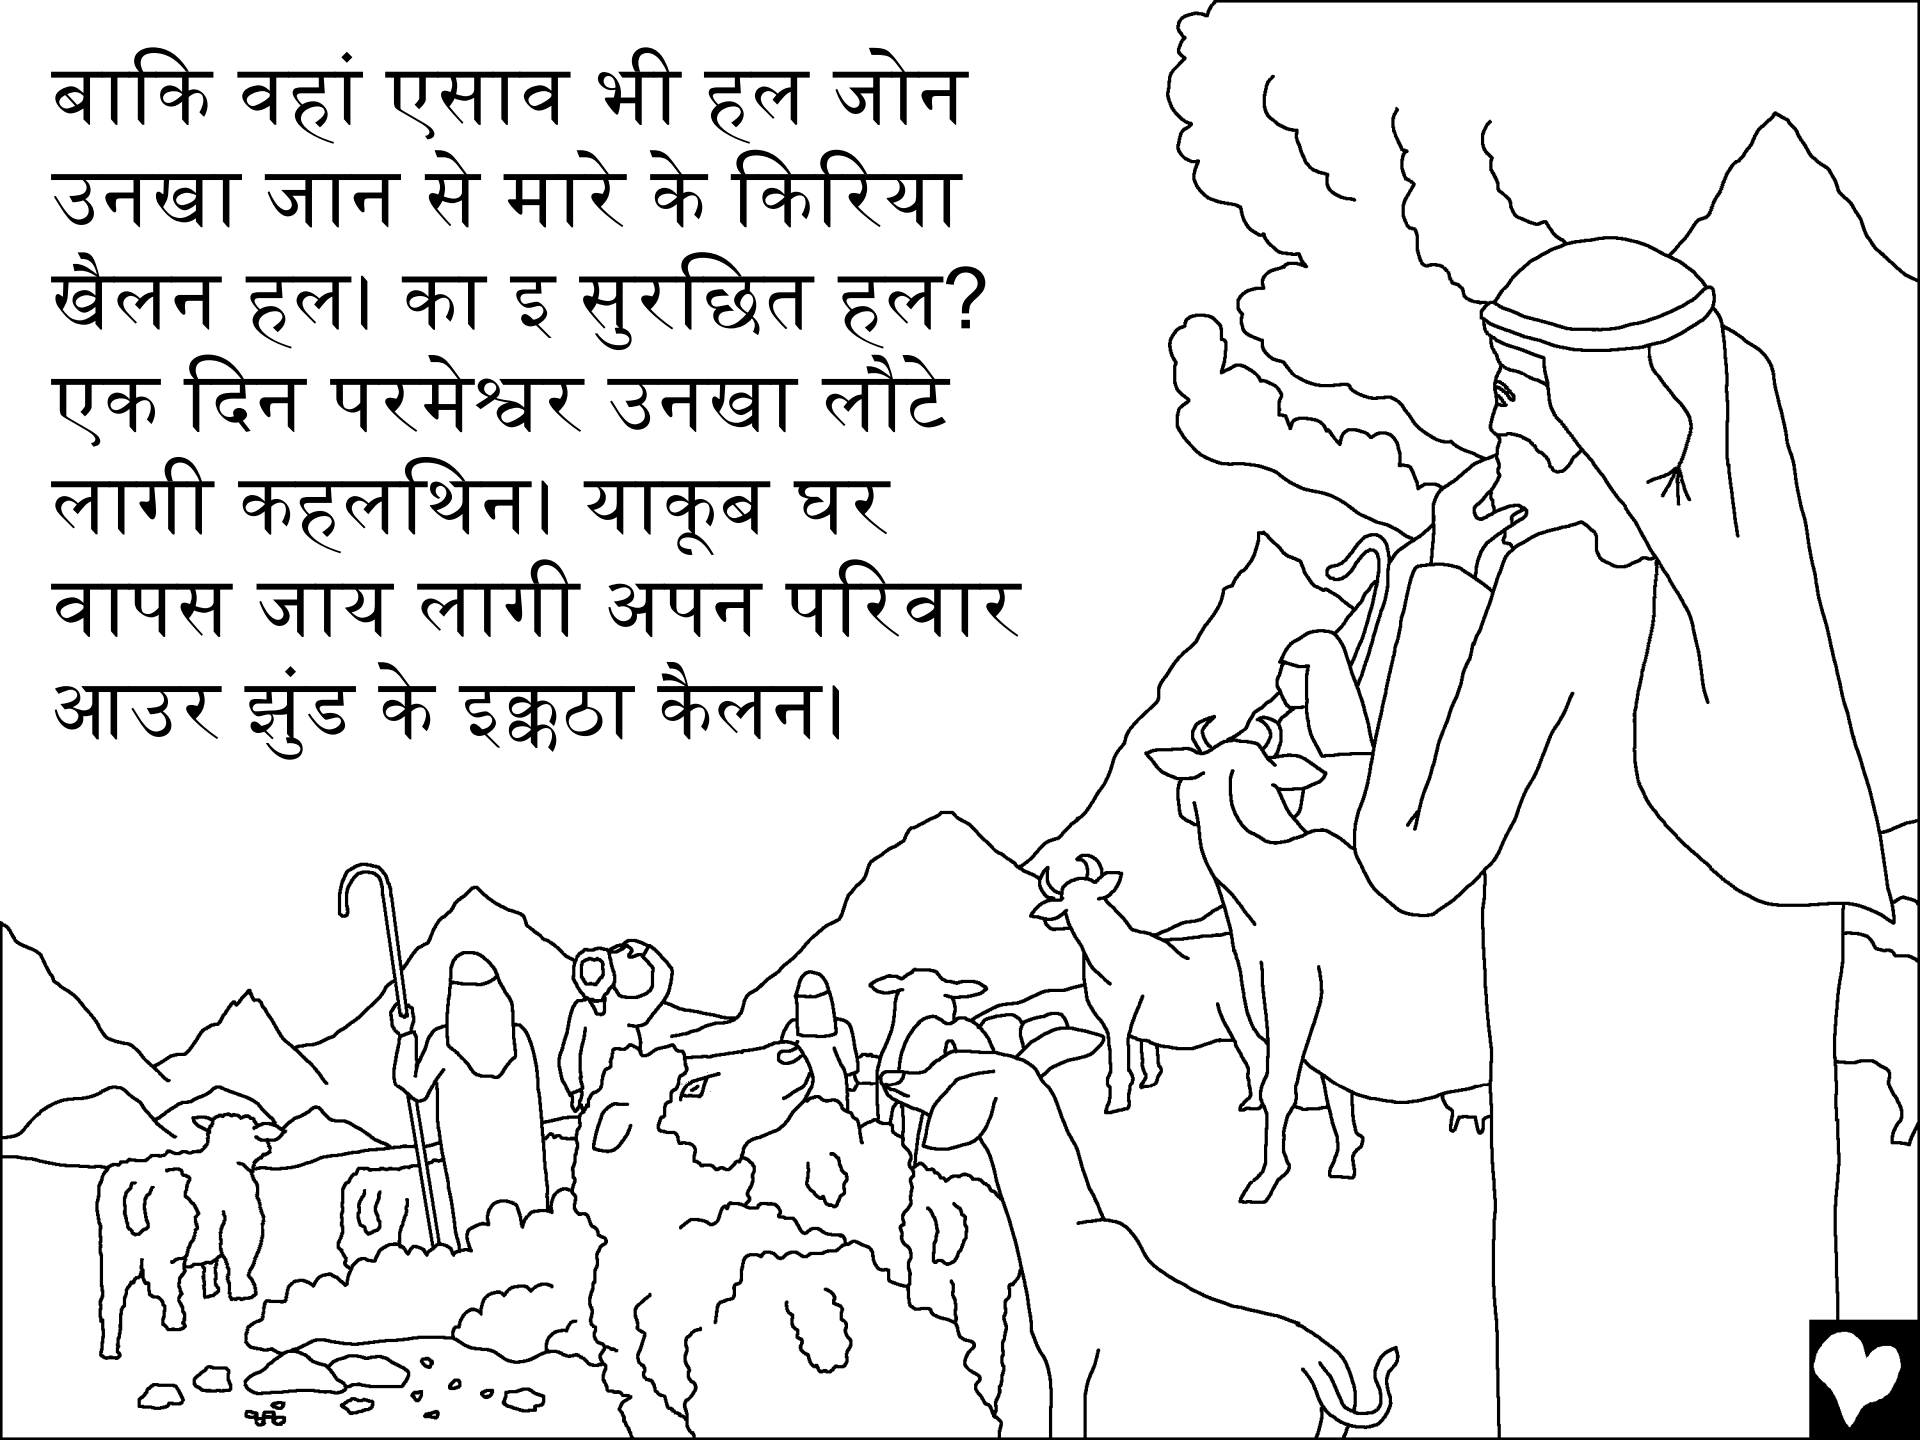 बाकि वहां एसाव भी हल जोन
उनखा जान से मारे के किरिया
खैलन हल। का इ सुरछित हल?
एक दिन परमेश्वर उनखा लौटे
लागी कहलथिन। याकूब घर
वापस जाय लागी अपन परिवार
आउर झुंड के इक्कठा कैलन।